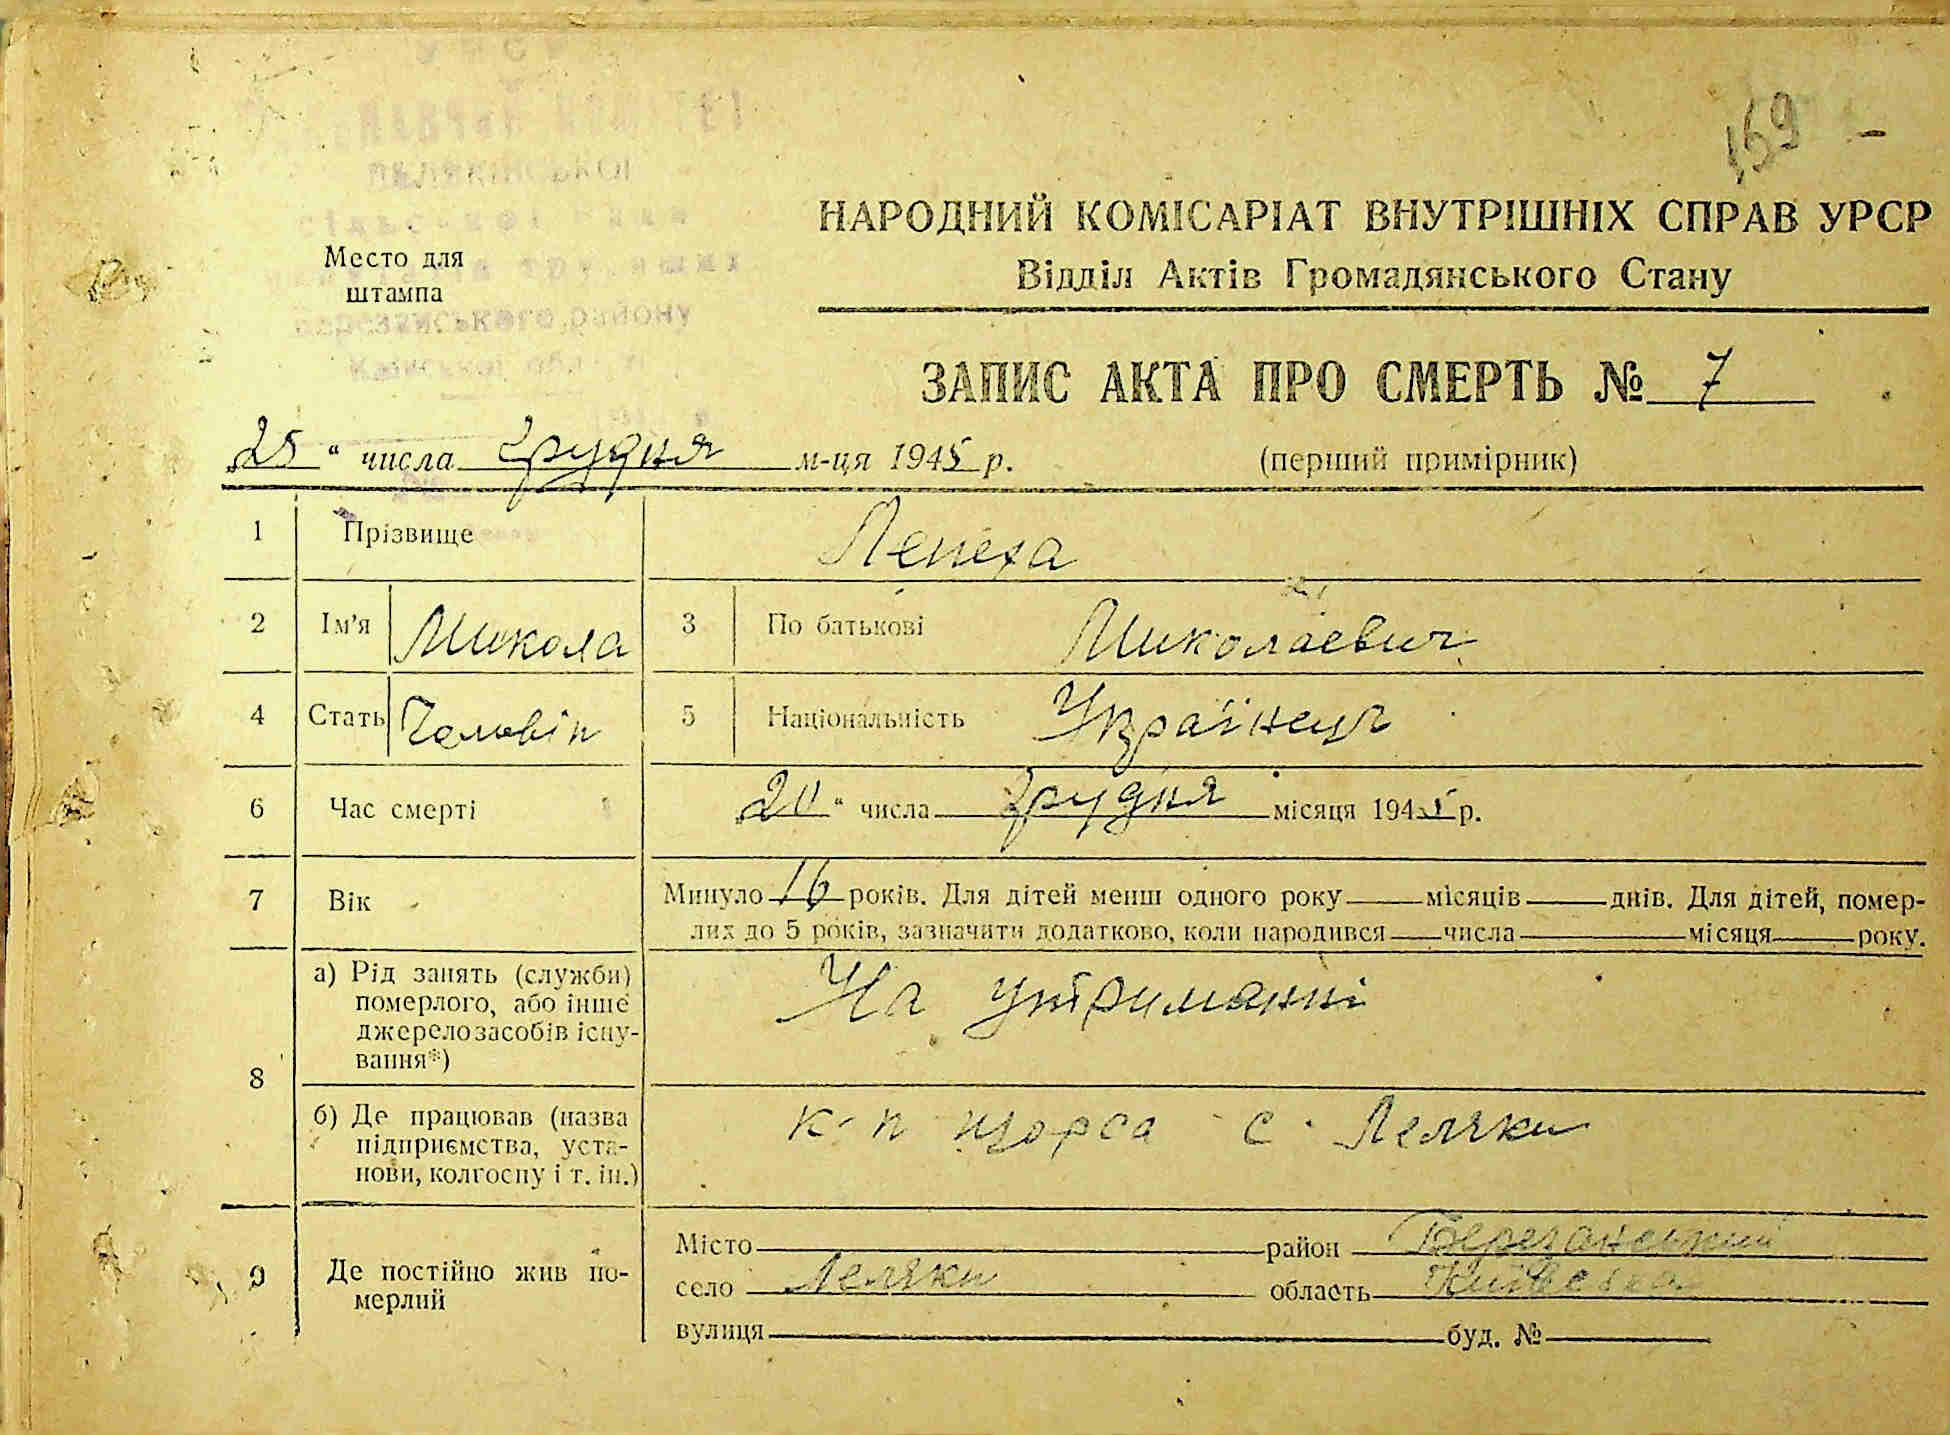 169
НАРОДНИЙ КОМІСАРІАТ ВНУТРІШНІХ СПРАВ УРСР
Відділ Актів Громадянського Стану
Место для
штампа
району
ЗАПИС АКТА ПРО СМЕРТЬ № 7
„25“ числа грудня м-ця 1945 р. (перший примірник)
1 Прізвище Лепеха
2 Ім'я Микола 3 По батькові Миколаєвич
4 Стать Чоловік 5 Національність Українець
6 Час смерті „20“ числа грудня місяця 1945 р.
7 Вік Минуло 16 років. Для дітей менш одного року місяців днів. Для дітей, помер-
лих до 5 років, зазначити додатково, коли народився числа місяця року.
8 а) Рід занять (служби)
померлого, або інше
джерело засобів існу-
вання*)
На утриманні
б) Де працював (назва
підприємства, уста-
нови, колгоспу і т. ін.)
к-п щорса с. Леляки
9 Де постійно жив по-
мерлий
Місто район Березанський
село Леляки область Київська
вулиця буд. №